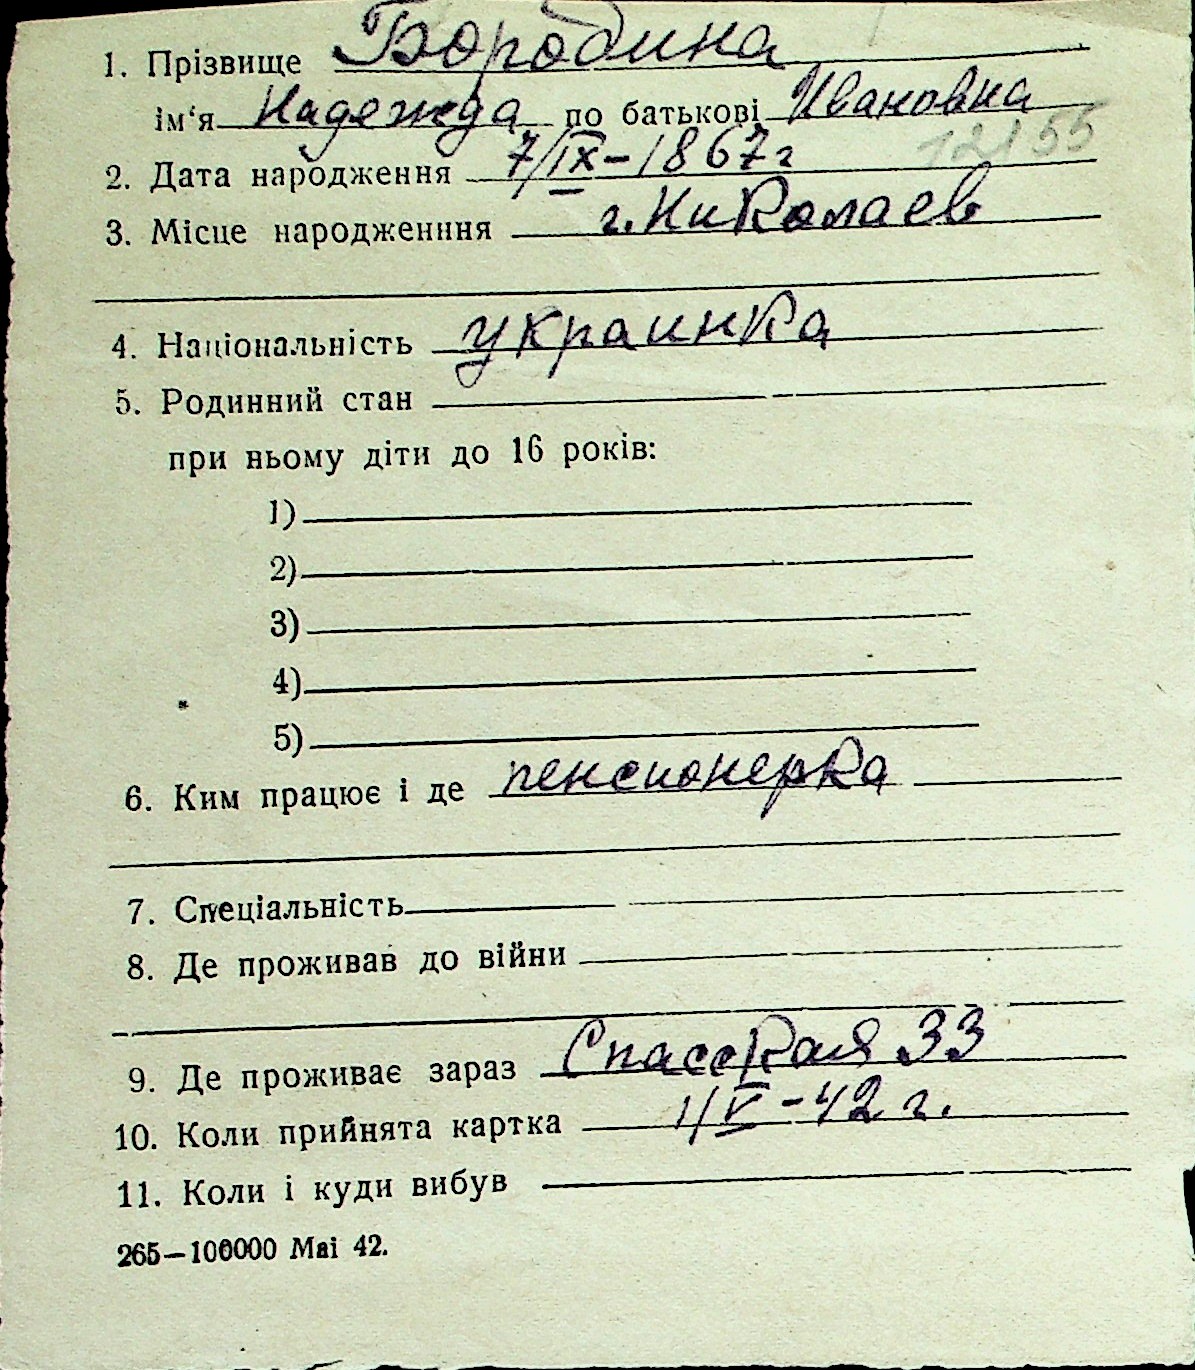 1. Прізвище Бородина
ім'я Надежда по батькові Ивановна
12155
2. Дата народження 7/IX-1867г
3. Місце народженння г. Николаев
4. Національність украинка
5. Родинний стан
при ньому діти до 16 років:
1)
2)
3)
4)
5)
6. Ким працює і де пенсионерка
7. Спеціальність
8. Де проживав до війни
9. Де проживає зараз Спасская 33
10. Коли прийнята картка 1/V-42 г.
11. Коли і куди вибув
265—100000 Mai 42.